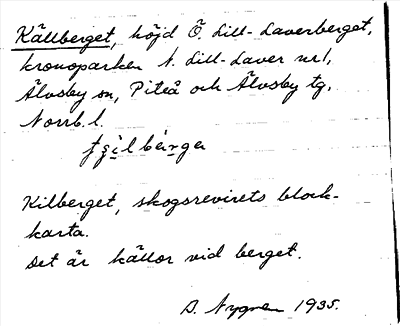 Källberget, höjd Ö. Lill-Laverberget,
kronoparken N. Lill-Laver nr 1,
Älvsby sn, Piteå och Älvsby tg.
Norrb. l.
Kilberget, skogsrevirets block-
karta.
Det är källor vid berget.
D. Nygren 1935.